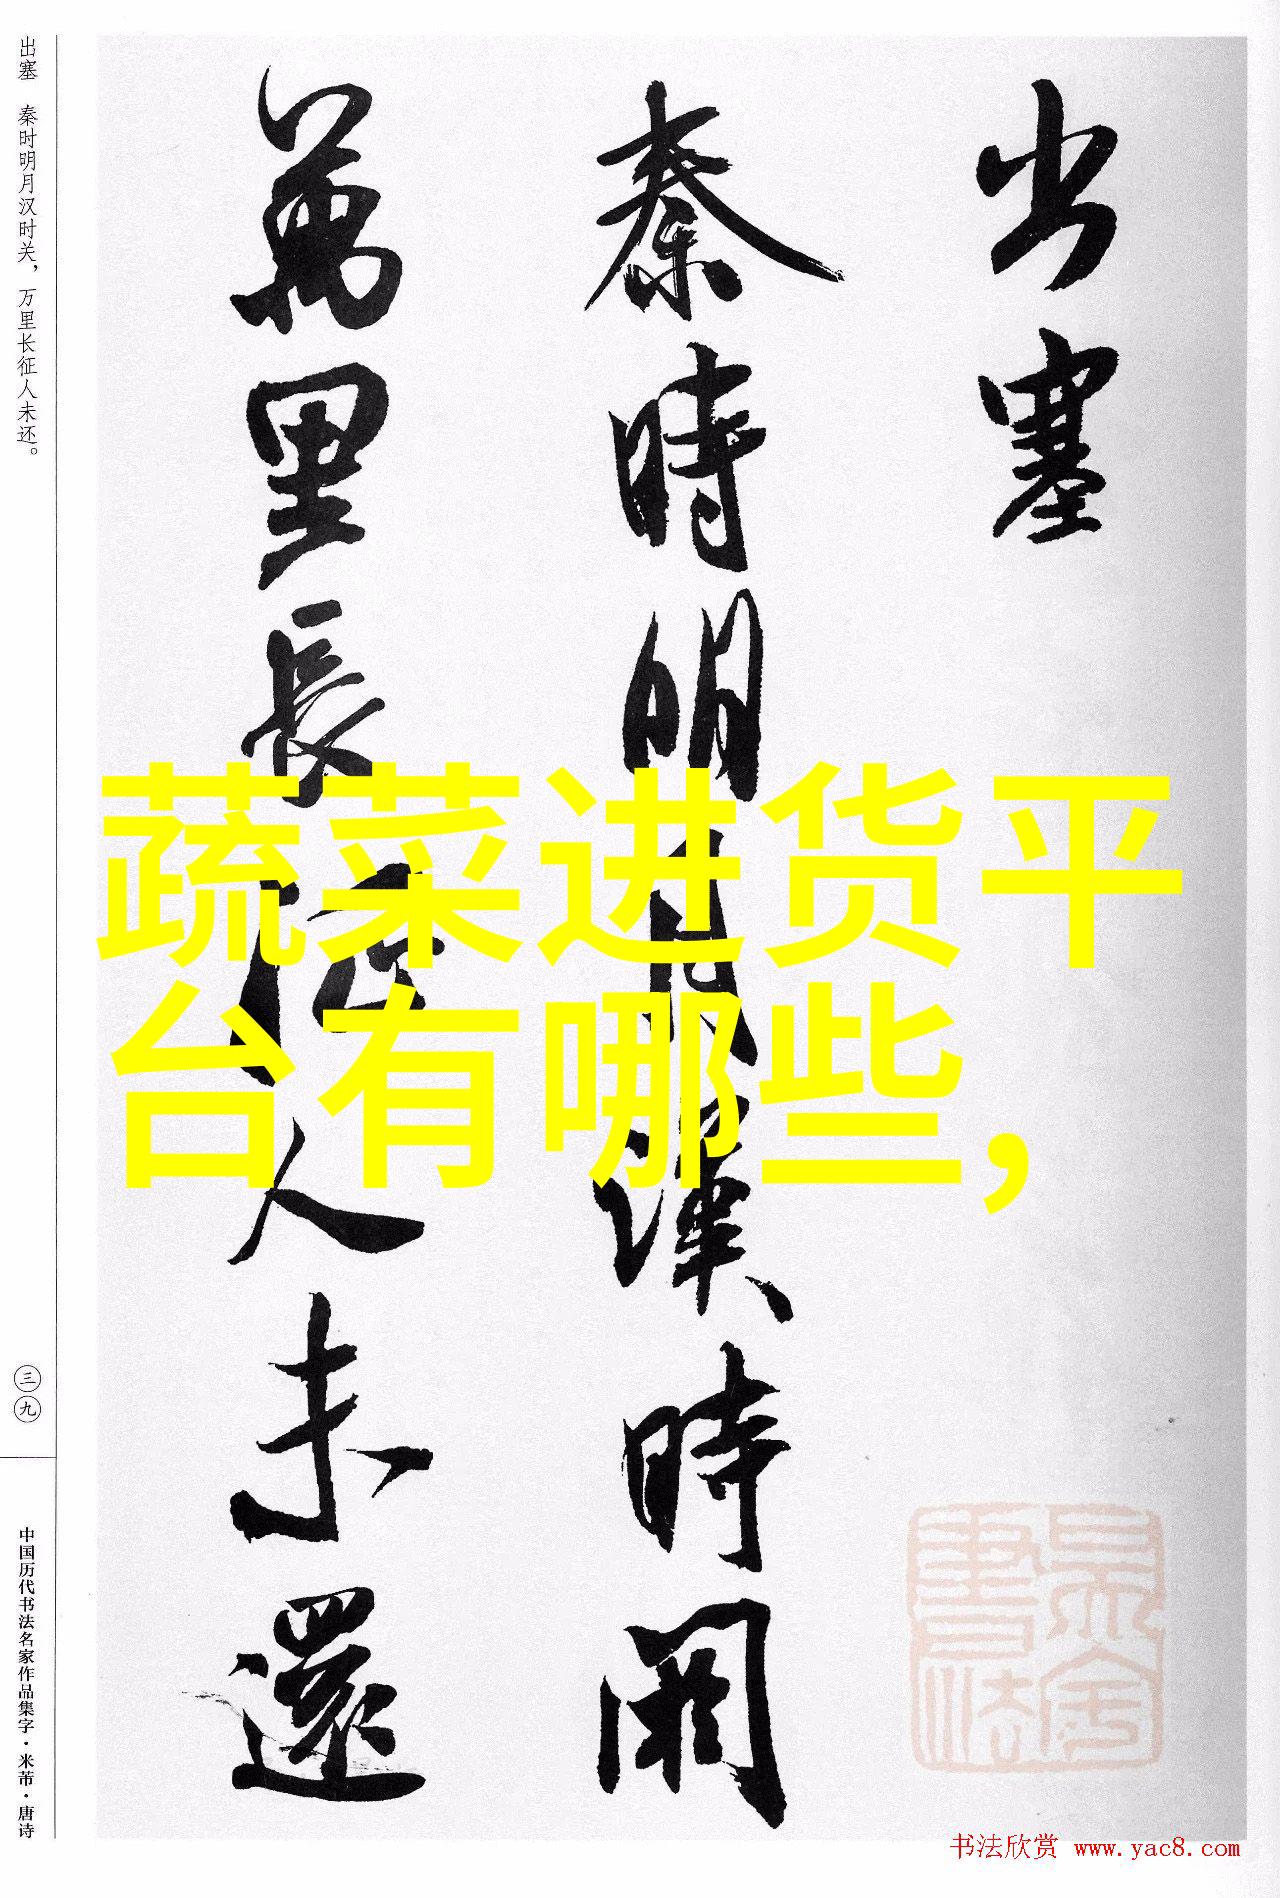 出塞
秦時明月漢時関
萬里長征人未還
蔬菜进货平
台有哪些，
出塞 秦时明月汉时关，万里长征人未还。
三九
中国历代书法名家作品集字·米芾·唐诗
书法欣赏 www.yac8.com